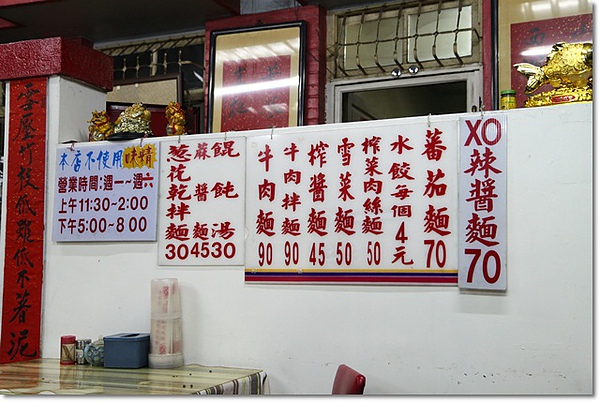 雪壓竹枝低雖低不著泥
本店不使用味精
營業時間:週一~週六
上午11:30~2:00
下午5:00~8:00
葱花乾拌麵30
麻醬麵45
餛飩湯30
牛肉麵90
牛肉拌麵90
榨醬麵45
雪菜麵50
榨菜肉絲麵50
水餃每個4元
蕃茄麵70
XO辣醬麵70